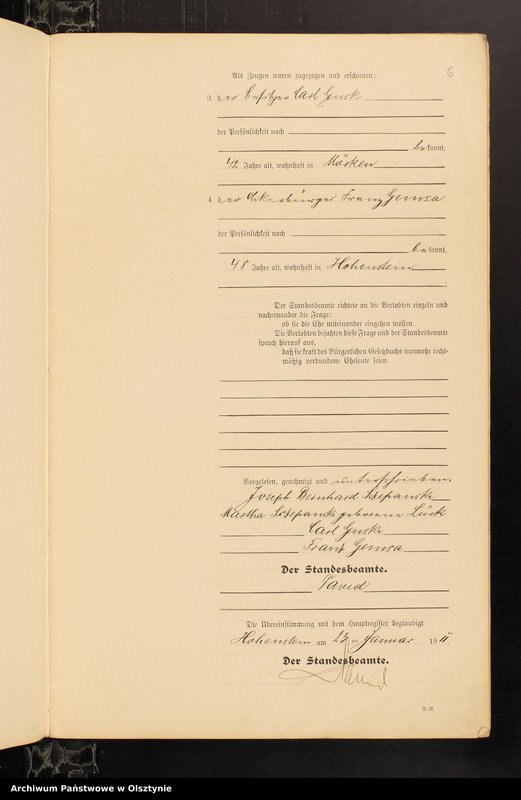 6
Als Zeugen waren zugezogen und erschienen:
3. der Besitzer Carl Guski
der Persönlichkeit nach
bekannt,
42 Jahre alt, wohnhaft in Mörken
4. der Ackerbürger Franz Gemsa
der Persönlichkeit nach
bekannt,
48 Jahre alt, wohnhaft in Hohenstein
Der Standesbeamte richtete an die Verlobten einzeln und
nacheinander die Frage:
ob sie die Ehe miteinander eingehen wollen.
Die Verlobten bejahten diese Frage und der Standesbeamte
sprach hierauf aus,
daß sie kraft des Bürgerlichen Gesetzbuchs nunmehr recht-
mäßig verbundene Eheleute seien.
Vorgelesen, genehmigt und unterschrieben
Joseph Bernhard Sczepanski
Martha Sczepanski geborene Lück
Carl Guski
Franz Gemsa
Der Standesbeamte.
David
Die Übereinstimmung mit dem Hauptregister beglaubigt
Hohenstein am 23 ten Januar 1911.
Der Standesbeamte.
David
R.-R.
Archiwum Państwowe w Olsztynie